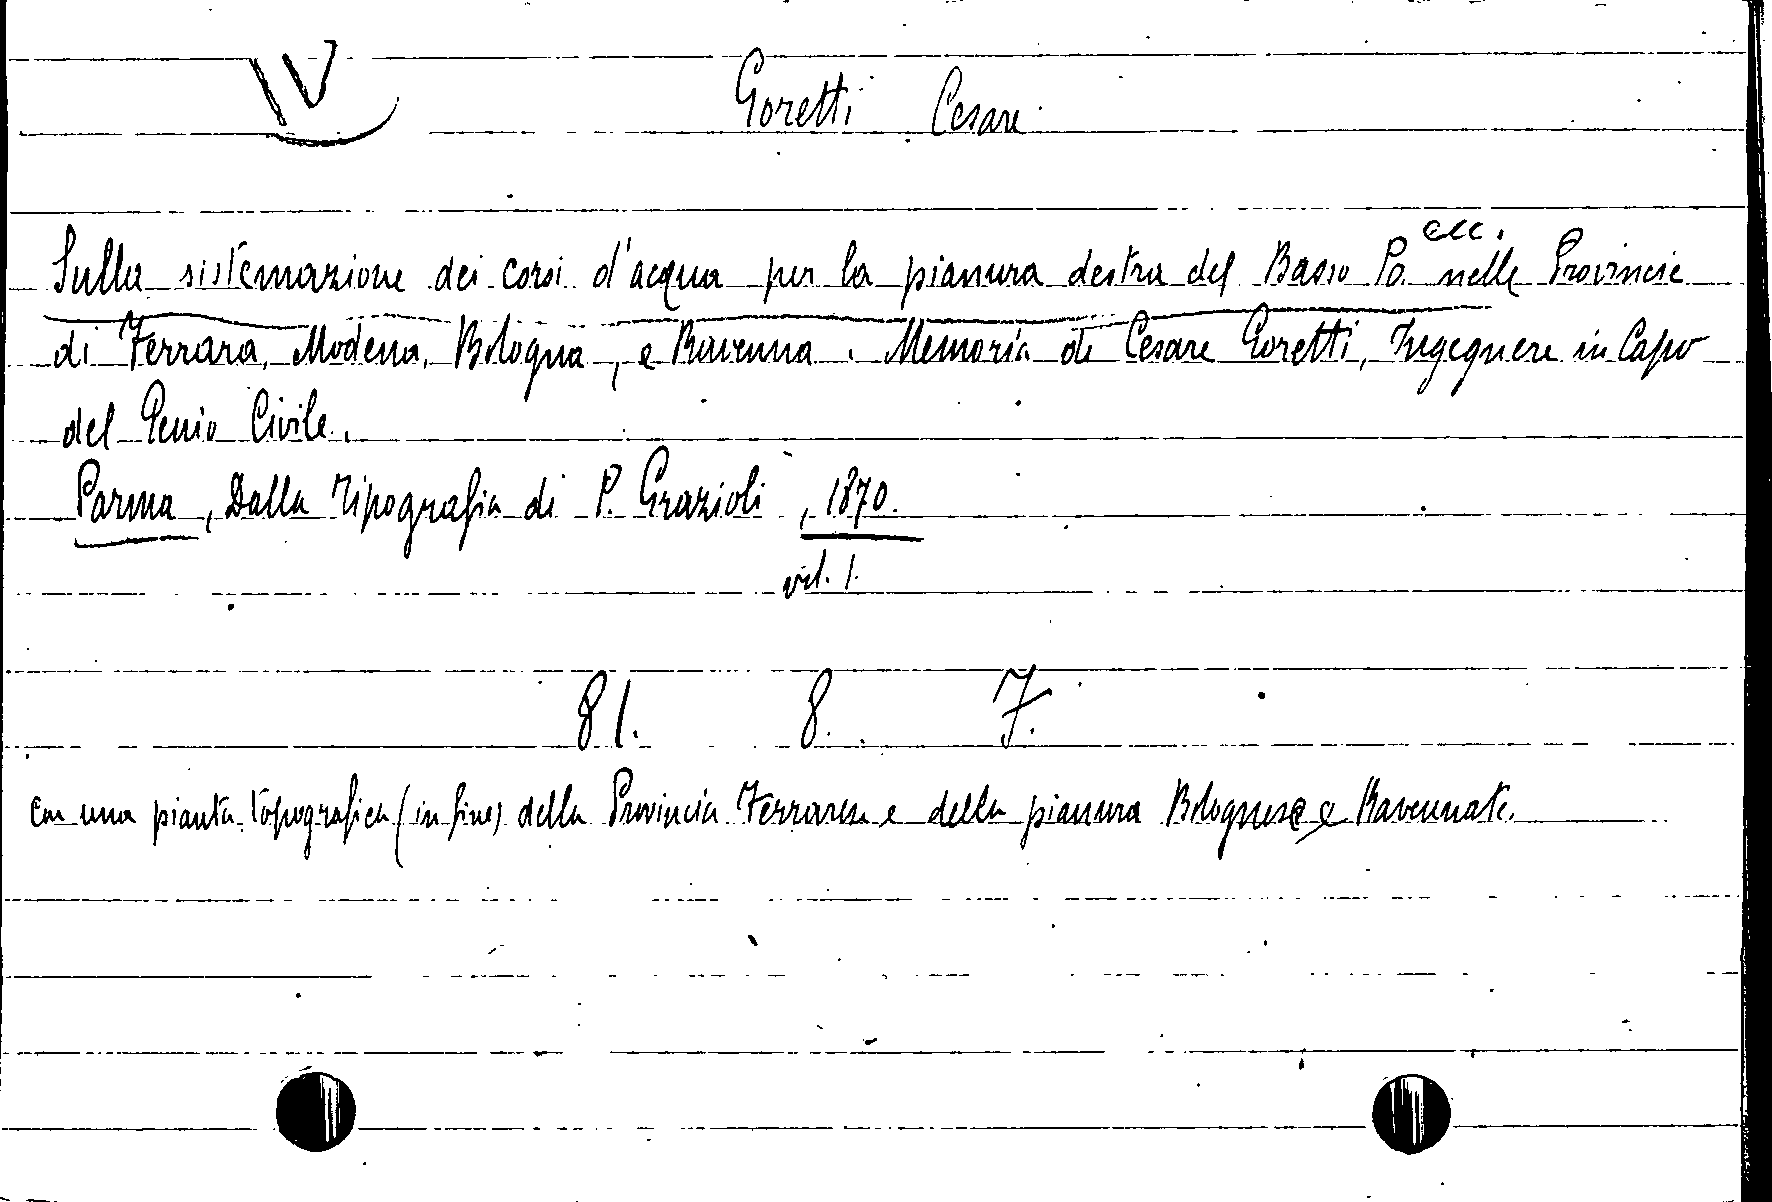 IV
Goretti Cesare
ecc.
Sulla sistemazione dei corsi d'acqua per la pianura destra del Basso Po. nelle Provincie
di Ferrara, Modena, Bologna, e Ravenna. Memoria di Cesare Goretti, Ingegnere in Capo
del Genio Civile.
Parma, Dalla Tipografia di P. Grazioli, 1870.
vol. 1.
81. 8. 7.
Con una pianta topografica (in fine) della Provincia Ferrarese e della pianura Bolognese e Ravennate.